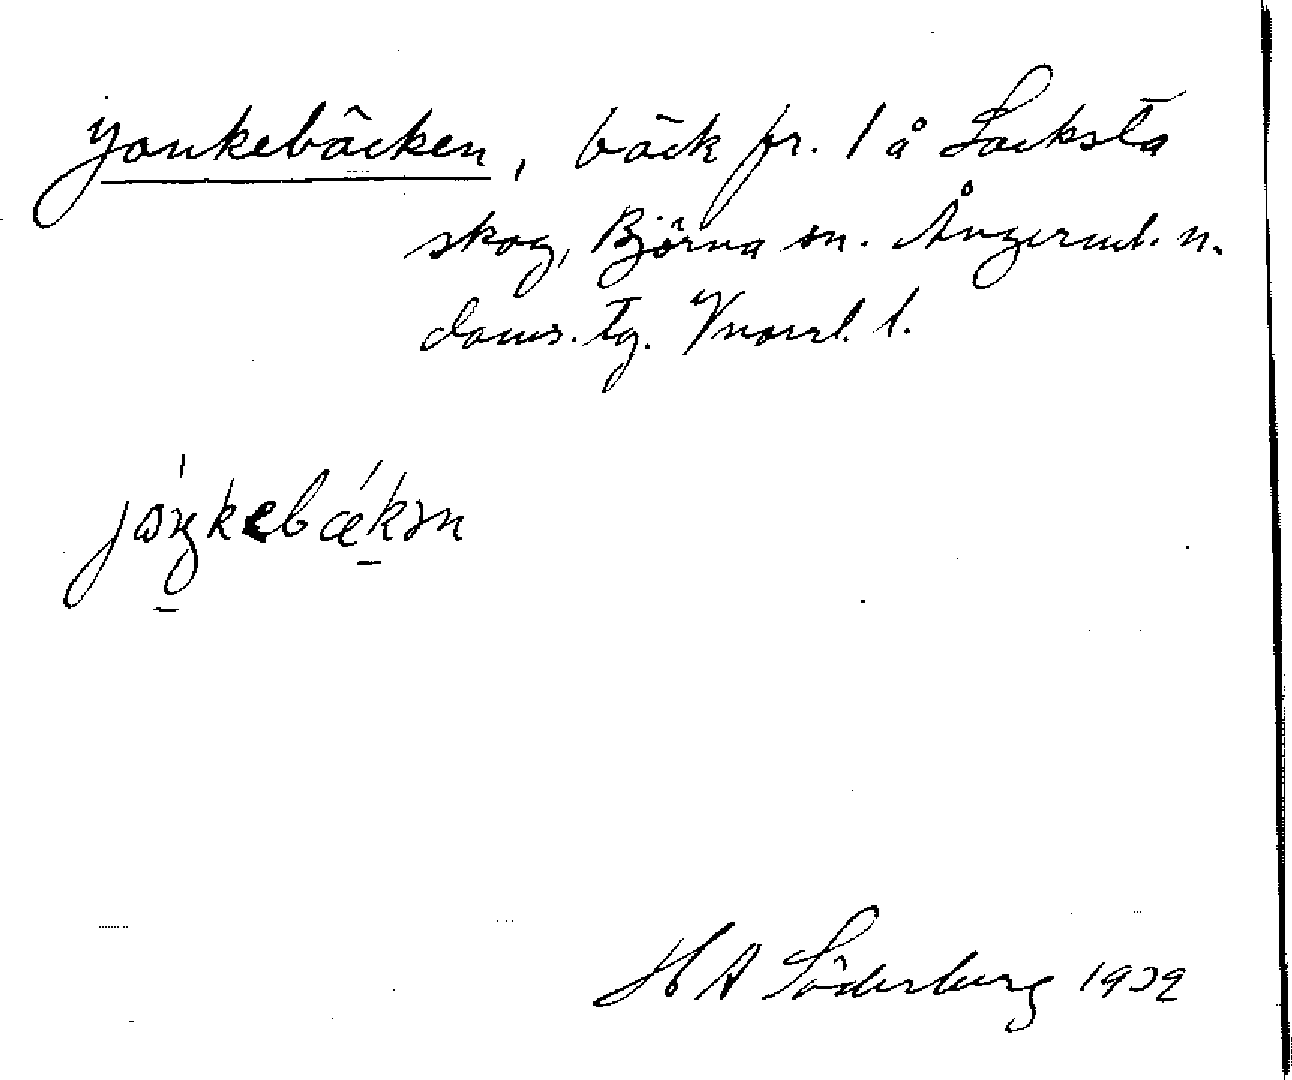 Jankebäcken, bäck fr. 1 å Locksta
skog, Björna sn. Ångerml. n.
doms. tg. Vnorrl. l.
H A Söderberg 1932